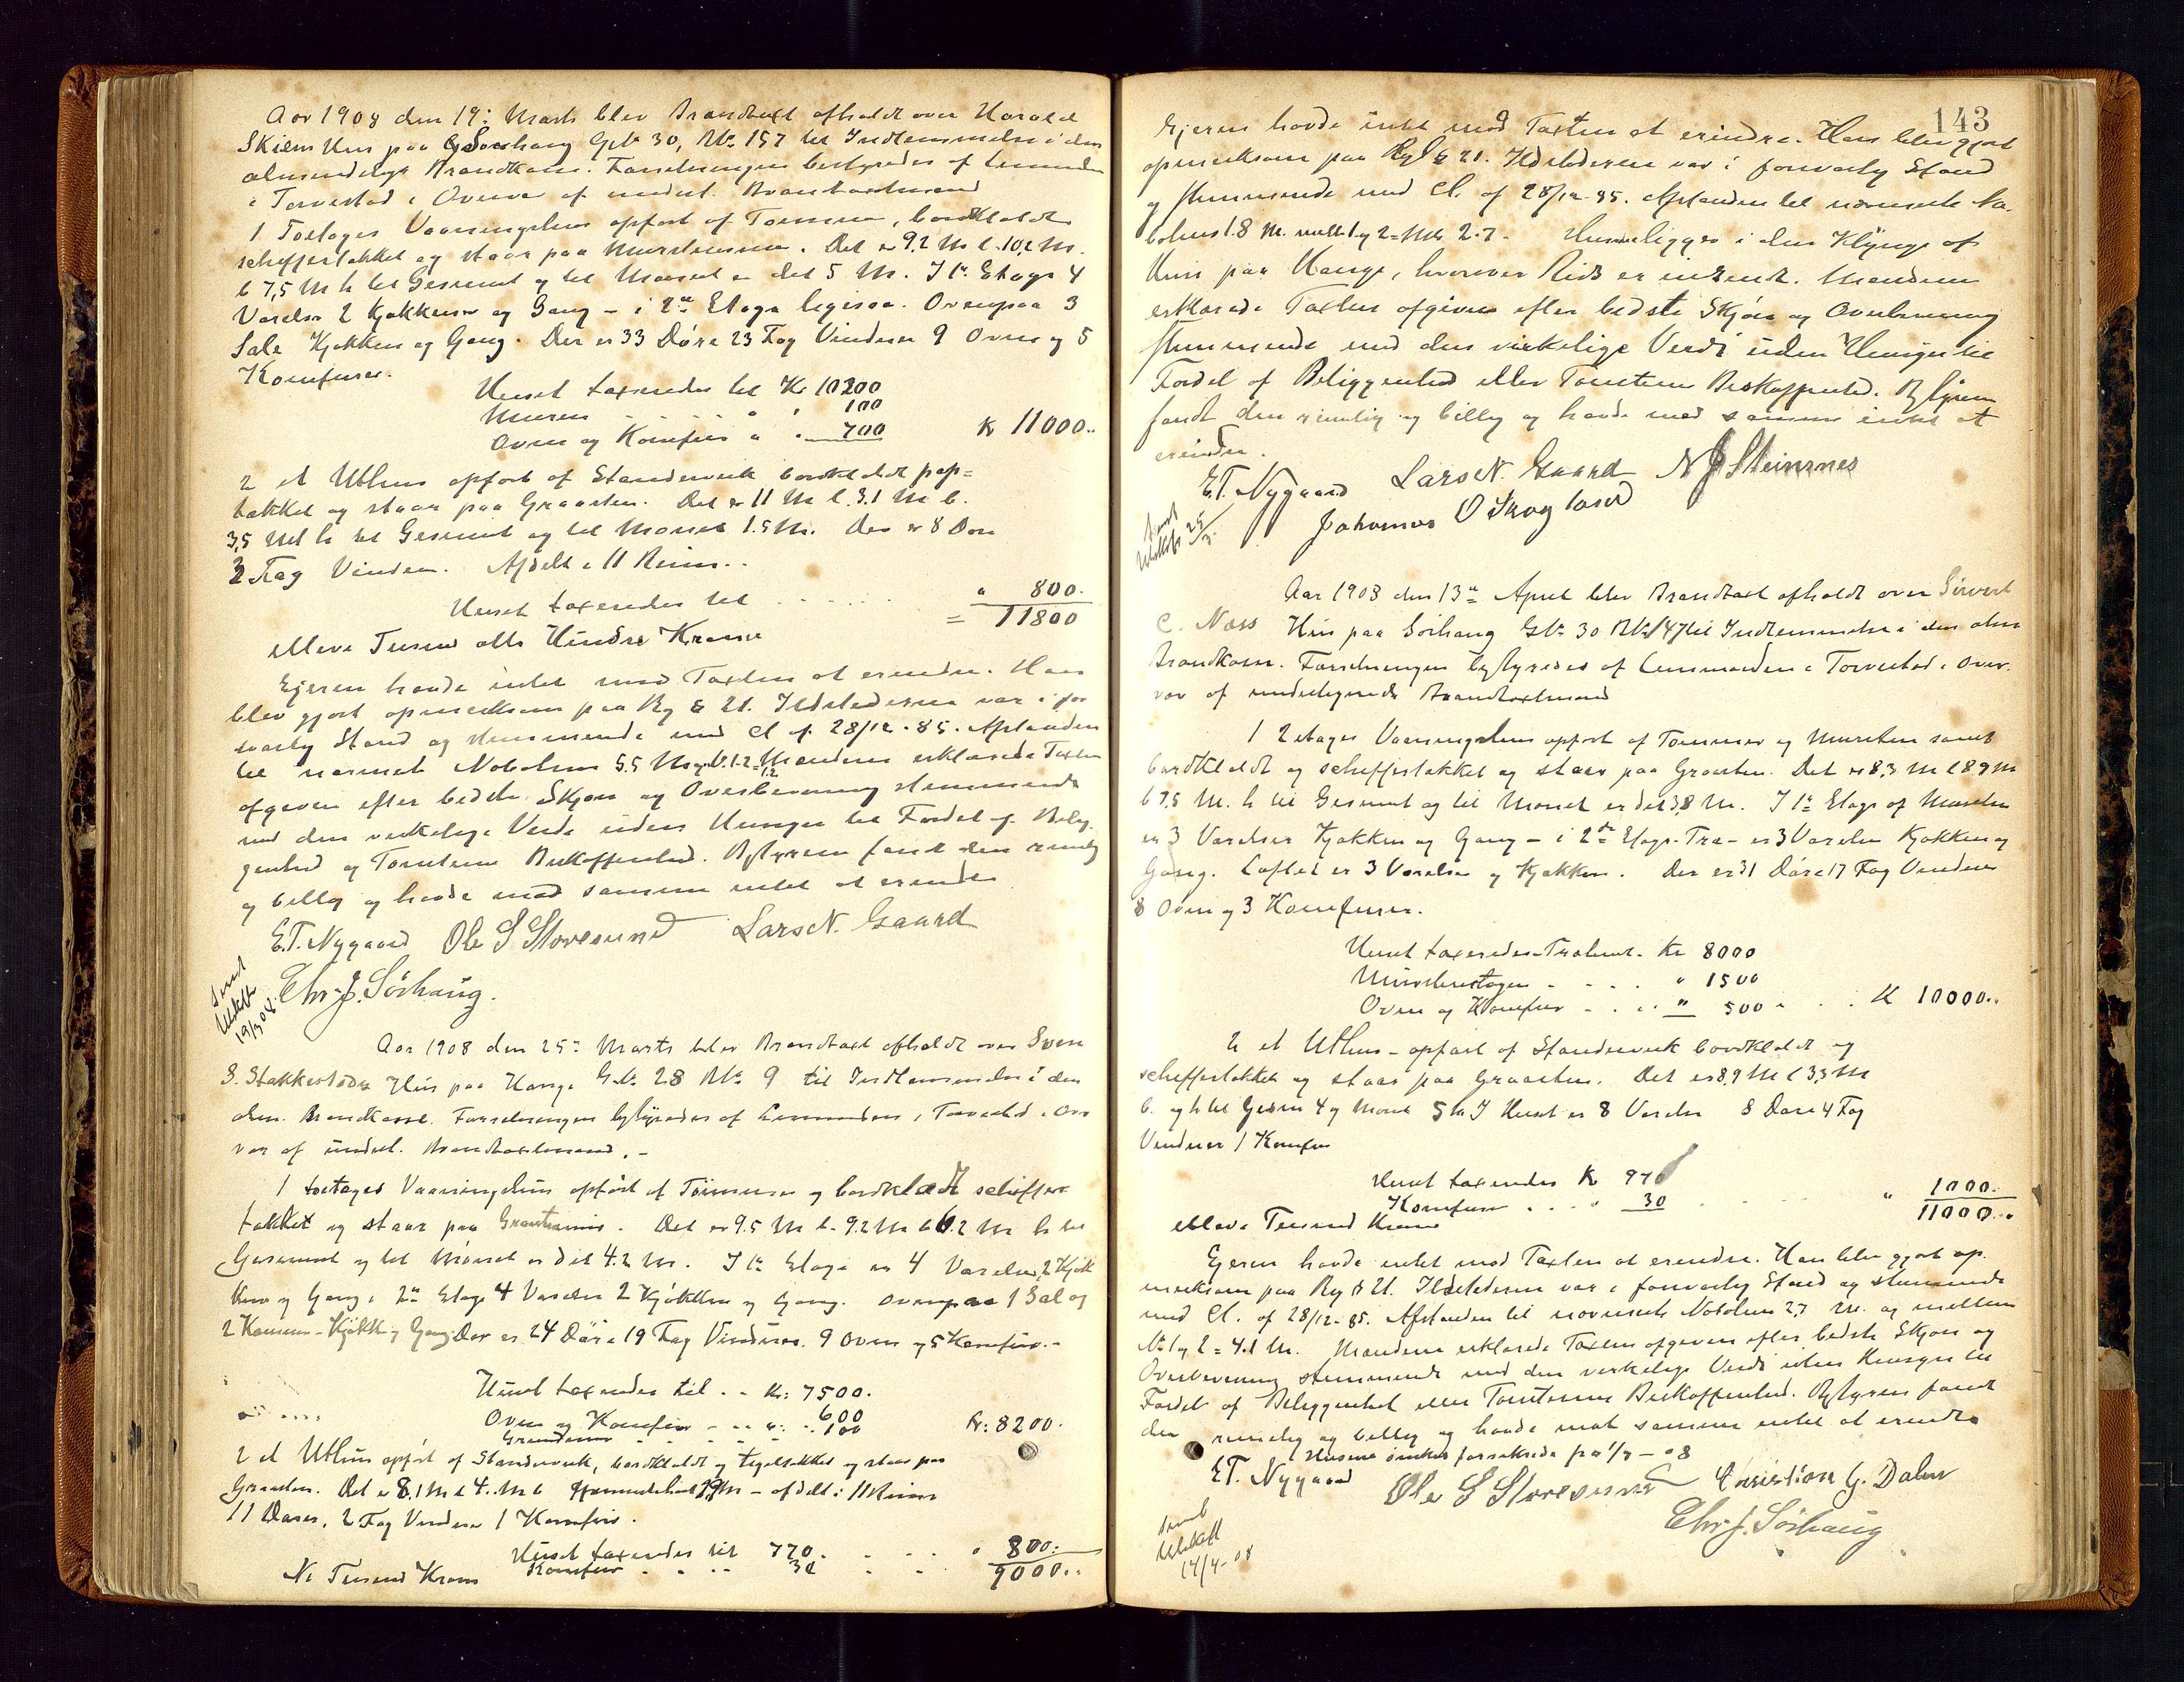 Aar 1908 den 19: Marts blev Brandtaxt afholdt over Harald
Skiens Hus paa Sørhaug G.No 30, BNo 157 til Indlemmelse i den
almindelige Brandkasse. Forretningen bestyredes af Lensmanden
i Torvestad i Overvær af undert. Brandtaxtmænd
1 Toetages Vaaningshus opført af Tømmer, bordklædt
schiffertækket og staar paa Murstensmur. Det er 9.2 M l. 10,2 M.
b 7,5 M h til Gesimst og til Mønset er det 5 M. I 1ste Etage 4
Værelser 2 Kjøkkener og Gang – i 2den Etage ligesaa. Ovenpaa 3
Sale Kjøkken og Gang. Der er 33 Døre 23 Fag Vinduer 9 Ovne og 5
Komfurer.
Huset taxeredes til Kr 10200
Muren . . . . " " 100
Ovne og Komfur " . 700 Kr 11000..
2 et Uthus opført af Standerverk bordklædt pap=
tækket og staar paa Graasten. Det er 11 M l. 3.1 M b.
3,5 M h til Gesimst og til Mønset 1.5 M. Der er 8 Døre
2 Fag Vinduer. Afdelt i 11 Reim..
Huset taxeredes til . . . . . . " 800.
elleve Tusend otte Hundre Kroner = 11800
Ejeren havde intet mod Taxten at erindre. Han
blev gjort opmerksom paa Rg § 21. Ildstederne var i for
svarlig Stand og stemmende med Cl af 28/12-85. Afstanden
til nærmeste Nabohus 5.5 M og No 1-2= 1,2 Mændene erklærede Taxten
afgiven efter bedste Skjøn og Overbevisning stemmende
med den verkelige Verdi uden Hensyn til Fordel af Belig
genhed og Tomtens Beskaffenhed. Bestyreren fandt den rimelig
og billig og havde mod samme intet at erindre
E.T. Nygaard Ole S Storesund Lars N. Gaard
Chr. J. Sörhaug.
Sendt
Udskrift
19/3 08.
Aar 1908 den 25de Marts blev Brandtaxt afholdt over Sven
S. Stakkestads Hus paa Hauge G.No 28 BNo 9 til Indlemmelse i den
alm. Brandkasse. Forretningen bestyredes af Lensmanden i Torvestad i Over
vær af undert. Brandtaxtmænd. –
1 toetages Vaaningshus opført af Tømmer og bordklædt schiffer
tækket og staar paa Graastensmur. Det er 9.5 M l. 9.2 M b 6.2 M h til
Gesimset og til Mønset er det 4.2 M. I 1ste Etage er 4 Værelser, 2 Kjøk
kener og Gang i 2den Etage 4 Værelser 2 Kjøkken og Gang. ovenpaa 1 Sal og
2 Kammer – Kjøkk. og Gang. Der er 24 Døre 19 Fag Vinduer. 9 Ovne og 5 Komfur.–
Huset taxeredes til . . Kr: 7500.
Ovne og Komfur – . . " . . 600
Grundmur . . . . . 100 Kr: 8200.
2 et Uthus opført af Standerverk, bordklædt og teglstækket og staar paa
Graasten. Det er 8.1 M l 4. M b – afdelt i 11 Reim
11 Døre, 2 Fag Vinduer 1 Komfur.
Huset taxeredes til 770. . . . " 800.–
Ni Tusend Kroner Komfur . . . . 30 . . 9000..
143
Ejeren havde intet mod Taxten at erindre. Han blev gjort
opmerksom paa Rgl § 21. Ildstederne var i forsvarlig Stand
og stemmende med Cl. af 28/12-85. Afstanden til nærmeste Na-
bohus 1.8 M. mell 1 og 2= 2.7. Husene ligger i den Klynge af
Hus paa Hauge, hvorover Rids er indsendt. Mændene
erklærede Taxten afgiven efter bedste Skjøn og Overbevisning
stemmende med den virkelige Verdi uden Hensyn til
Fordel af Beliggenhed eller Tomtens Beskaffenhed. Bestyreren
fandt den rimelig og billig og havde mod samme intet at
erindre.
E.T. Nygaard Lars N. Gaard N J Steinsnes
Johannes O Skogland
Sendt
Udskrift 25/3
Aar 1908 den 13de April blev Brandtaxt afholdt over Sivert
C. Næss Hus paa Sørhaug GNo 30 BNo 147 til Indlemmelse i den alm
Brandkasse. Forretningen bestyredes af Lensmanden i Torvestad i Over-
vær af undertegnede Brandtaxtmænd
1 2etages Vaaningshus opført af Tømmer og Mursten samt
bordklædt og schiffertækket og staar paa Graasten. Det er 8,3 M l 8 9 M
b 7,5 M. h til Gesimst og til Mønset er det 3,8 M. I 1ste Etage af Mursten
er 3 Værelser Kjøkken og Gang – i 2den Etage – Træ – er 3 Værelser Kjøkken og
Gang. Loftet er 3 Værelser og Kjøkken. Der er 31 Døre 17 Fag Vinduer
8 Ovne og 3 Komfurer.
Huset taxeredes – Træhuset – Kr 8000
Murstenetagen – . . . " 1500
Ovne og Komfur – . . . " 500 . . . K 10000..
2 et Uthus – opført af Standerverk bordklædt og
schiffertækket og staar paa Graasten. Det er 8,9 M l 3,3 M
b. og h til Gesim 4 og Mønset 5 M I Huset er 8 Værelser 8 Døre 4 Fag
Vinduer 1 Komfur
Huset taxeredes Kr 970
Komfuren . . . . 30 . . . " 1000.
elleve Tusend Kroner 11000..
Ejeren havde intet mod Taxten at erindre. Han blev gjort op-
merksom paa Rg § 21. Ildstederne var i forsvarlig Stand og stemmende
med Cl. af 28/12-85. Afstanden til nærmeste Nabohus 2,7 M. og mellem
No 1 og 2 = 4.1 M. Mændene erklærede Taxten afgiven efter bedste Skjøn og
Overbevisning stemmende med den verkelige Verdi uden Hensyn til
Fordel af Beliggenhed eller Tomternes Beskaffenhed. Bestyreren fandt
den rimelig og billig og havde mod samme intet at erindre
Husene ønskes forsikrede fra 1/7 – 08
E.T. Nygaard Ole S Storesund Christian G. Dahle
Chr. J. Sörhaug
Sendt
Udskrift
14/4-08